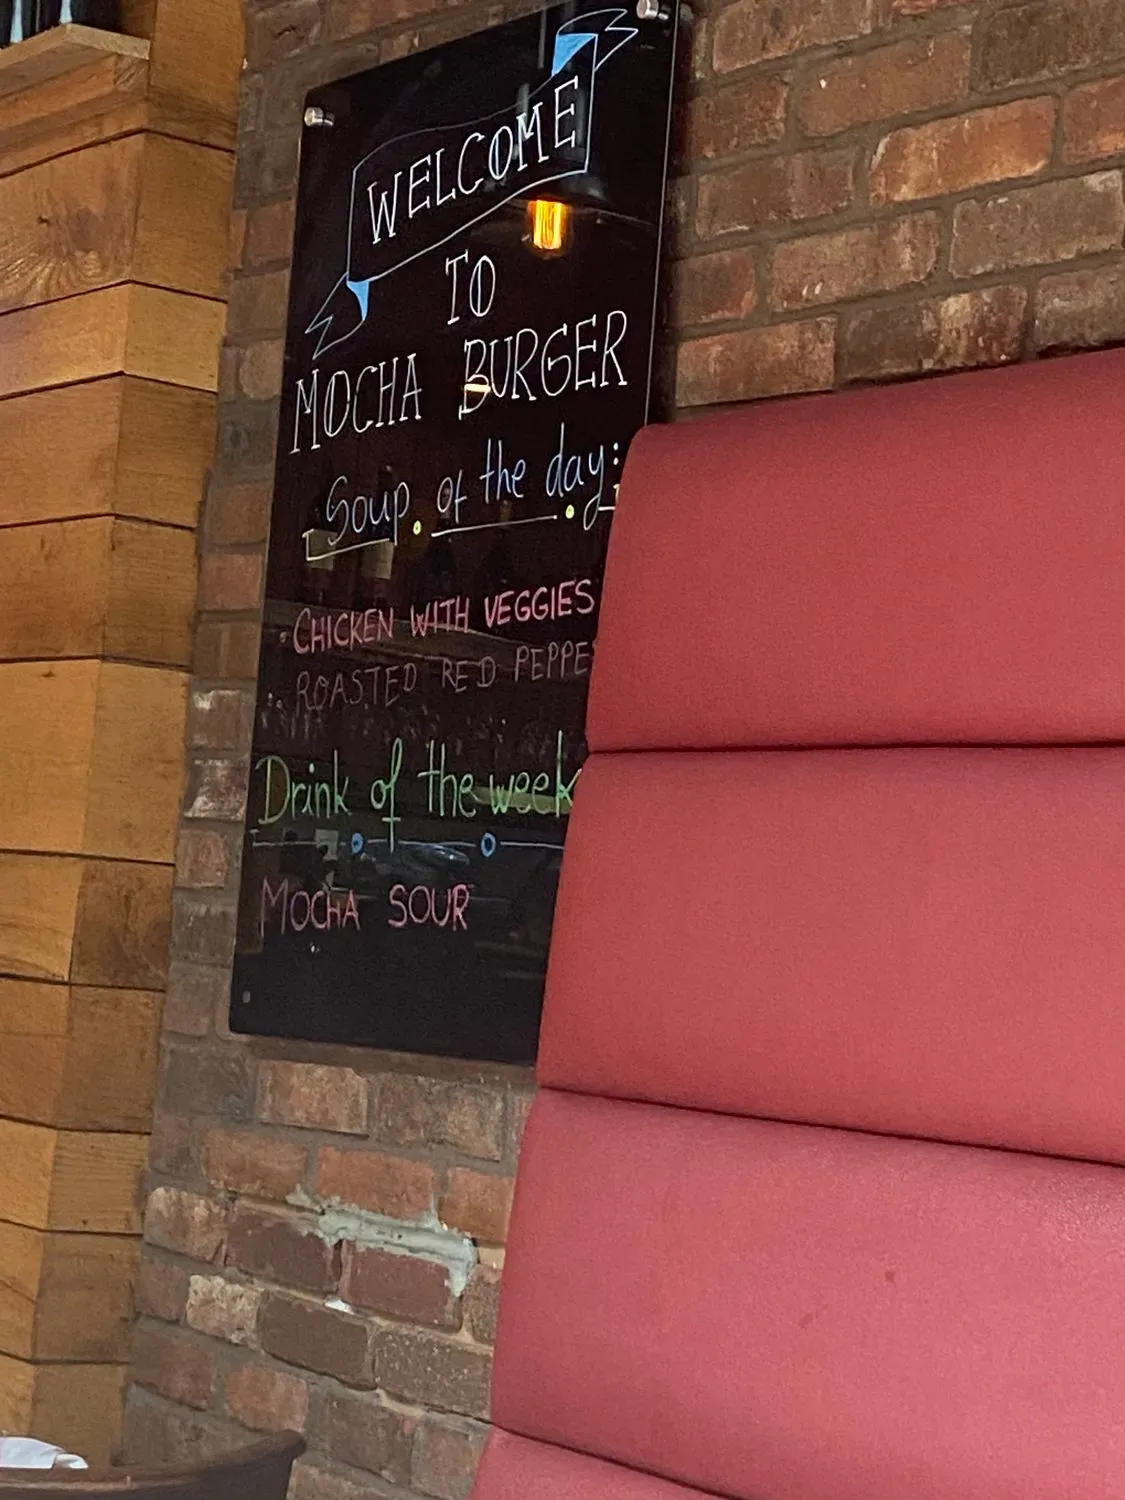 WELCOME
TO
MOCHA BURGER
Soup of the day:
· CHICKEN WITH VEGGIES
· ROASTED RED PEPPE
Drink of the week
MOCHA SOUR